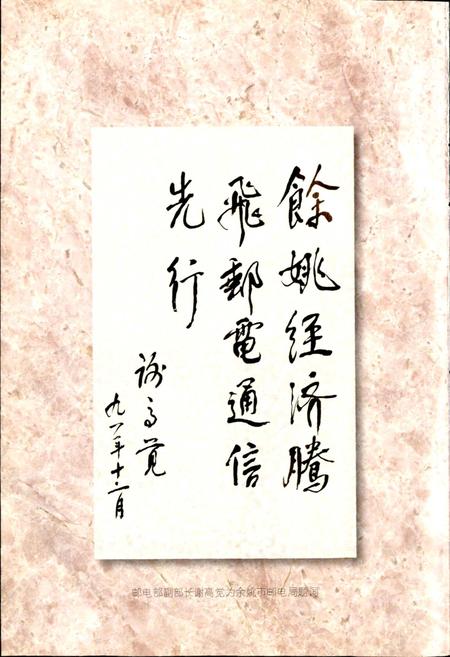 餘姚經济騰
飛郵電通信
先行
谢高覚
九一年十二月
邮电部副部长谢高觉为余姚市邮电局题词